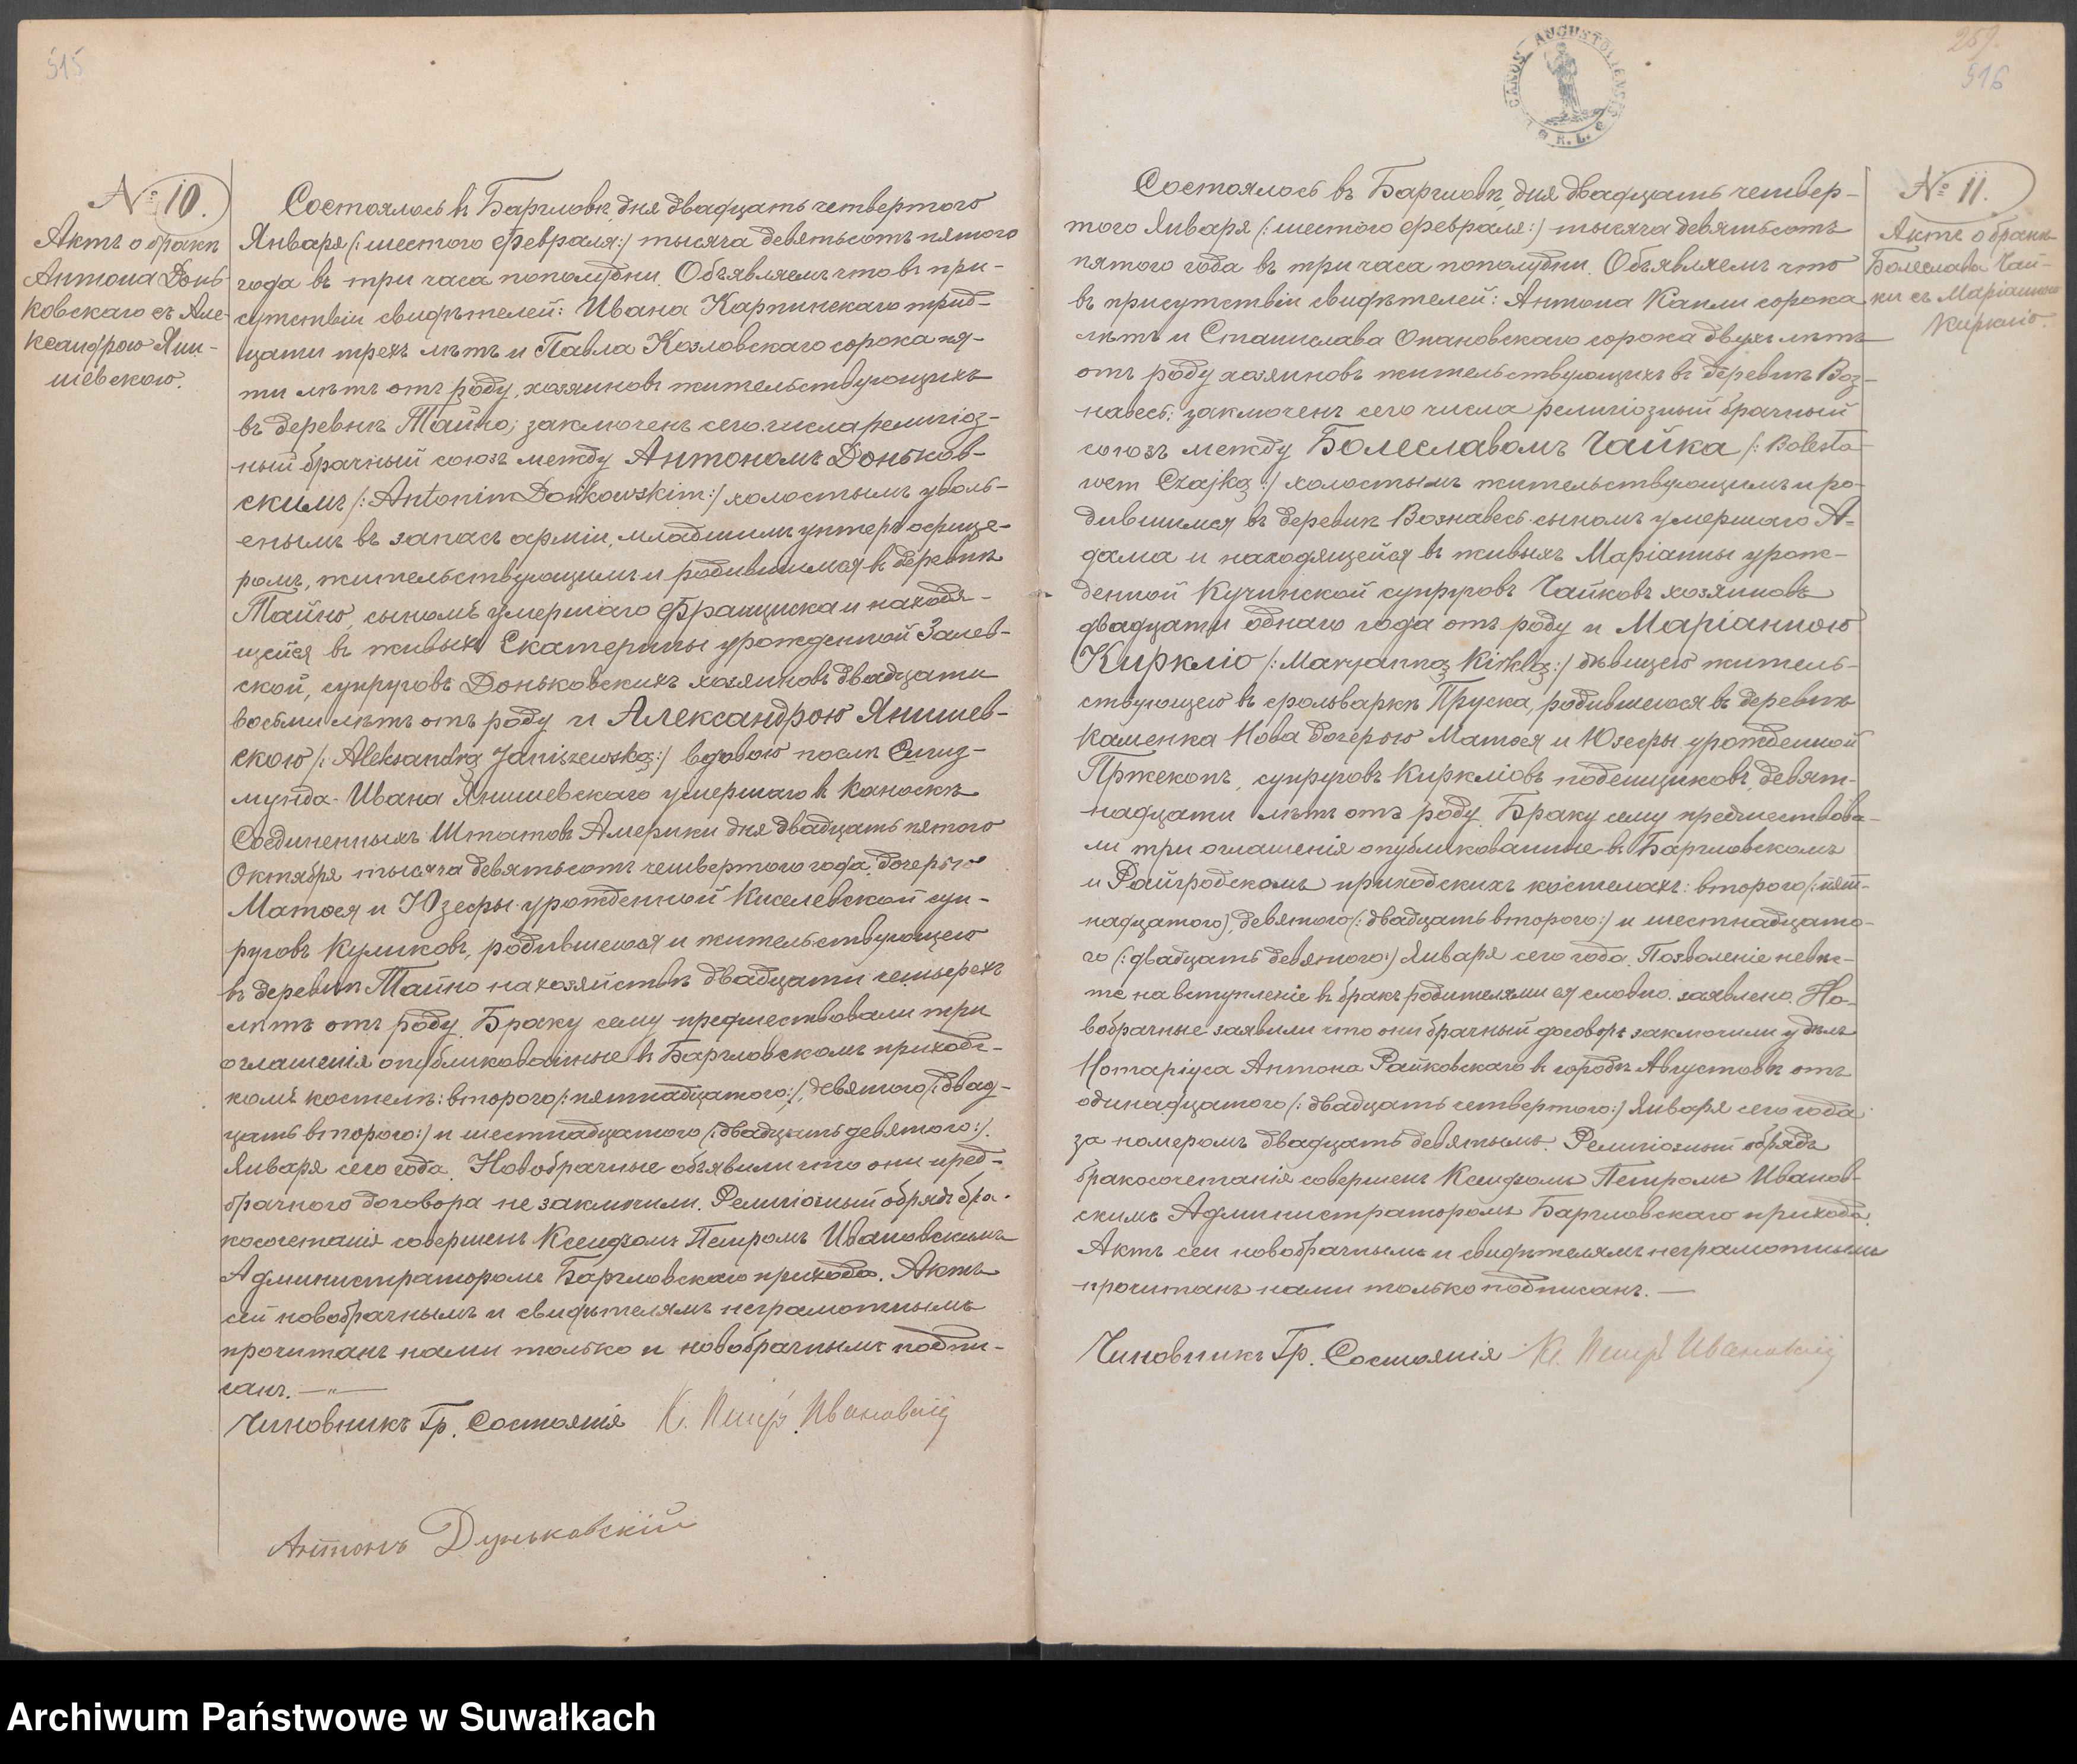 515
№ 10.
Актъ о бракѣ
Антона Донь-
ковскаго съ Але-
ксандрою Яни-
шевскою.
Состоялось въ Баргловѣ, дня двадцать четвертого
Января (: шестого Февраля :) тысяча девятьсотъ пятого
года въ три часа пополудни. Объявляемъ что въ при-
сутствіи свидѣтелей: Ивана Карпинскаго трид-
цати трехъ лѣтъ и Павла Козловскаго сорока пя-
ти лѣтъ отъ роду, хозяиновъ жительствующихъ
въ деревнѣ Тайно; заключенъ сего числа религіоз-
ный брачный союзъ между Антономъ Доньков-
скимъ (: Antonim Dońkowskim :) холостымъ уволь-
енымъ въ запасъ арміи, младшимъ унтеръ офице-
ромъ, жительствующимъ и родившимся въ деревнѣ
Тайно, сыномъ умершаго Франциска и находя-
щейся въ живыхъ Екатерины урожденной Залев-
ской, супруговъ Доньковскихъ хозяиновъ двадцати
восьми лѣтъ отъ роду и Александрою Янишев-
скою (: Aleksandrą Janiszewską :) вдовою послѣ Сигиз-
мунда-Ивана Янишевскаго умершаго въ Каноскѣ
Соединенныхъ Штатовъ Америки дня двадцать пятого
Октября тысяча девятьсотъ четвертого года, дочерью
Матвея и Юзефы урожденной Киселевской суп-
руговъ Куликовъ, родившеюся и жительствующею
въ деревнѣ Тайно на хозяйствѣ двадцати четырехъ
лѣтъ отъ роду. Браку сему предшествовали три
оглашенія опубликованные въ Баргловскомъ приходс-
комъ костелѣ: второго (: пятнадцатого :), девятого (: двад-
цать второго :) и шестнадцатого (: двадцать девятого :).
Января сего года. Новобрачные объявили что они пред-
брачного договора не заключили. Религіозный обрядъ бра-
косочетанія совершенъ Ксендзомъ Петромъ Ивановскимъ
Администраторомъ Баргловскаго прихода. Актъ
сей новобрачнымъ и свидѣтелямъ неграмотнымъ
прочитанъ нами только и новобрачнымъ подпи-
санъ. —"—
Чиновникъ Гр. Состоянія К. Петръ Ивановскій
Антонъ Дуньковскій
DECANUS AUGUSTOVIENSIS R. L.
259.
516
№ 11.
Актъ о бракѣ
Болеслава Чай-
ки съ Маріанною
Киркліо.
Состоялось въ Баргловѣ, дня двадцать четвер-
того Января (: шестого Февраля :) тысяча девятьсотъ
пятого года въ три часа пополудни. Объявляемъ что
въ присутствіи свидѣтелей: Антона Капли сорока
лѣтъ и Станислава Опановскаго сорока двухъ лѣтъ
отъ роду хозяиновъ жительствующихъ въ деревнѣ Воз-
навесь; заключенъ сего числа религіозный брачный
союзъ между Болеславомъ Чайка (: Bolesła-
wem Czajką :) холостымъ жительствующимъ и ро-
дившимся въ деревнѣ Вознавесь сыномъ умершаго А-
дама и находящейся въ живыхъ Маріанны урож-
денной Кучинской супруговъ Чайковъ хозяиновъ
двадцати одного года отъ роду и Маріанною
Киркліо (: Maryanną Kirklą :) дѣвицею житель-
ствующею въ фольваркѣ Пруска, родившеюся въ деревнѣ
Каменка Нова дочерью Матвея и Юзефы урожденной
Пржекопъ, супруговъ Киркліовъ поденщиковъ, девят-
надцати лѣтъ отъ роду. Браку сему предшествова-
ли три оглашенія опубликованные въ Баргловскомъ
и Райгродскомъ приходскихъ костелахъ: второго (: пят-
надцатого), девятого (: двадцать второго :) и шестнадцато-
го (: двадцать девятого :) Января сего года. Позволеніе невѣс-
те на вступленіе въ бракъ родителями ея словно заявлено. Но-
вобрачные заявили что они брачный договоръ заключили у дѣлъ
Нотаріуса Антона Райковскаго въ городѣ Августовѣ отъ
одинадцатого (: двадцать четвертого :) Января сего года
за номеромъ двадцать девятымъ. Религіозный обрядъ
бракосочетанія совершенъ Ксендзомъ Петромъ Иванов-
скимъ Администраторомъ Баргловскаго прихода.
Актъ сей новобрачнымъ и свидѣтелямъ неграмотнымъ
прочитанъ нами только подписанъ. —
Чиновникъ Гр. Состоянія К. Петръ Ивановскій
Archiwum Państwowe w Suwałkach